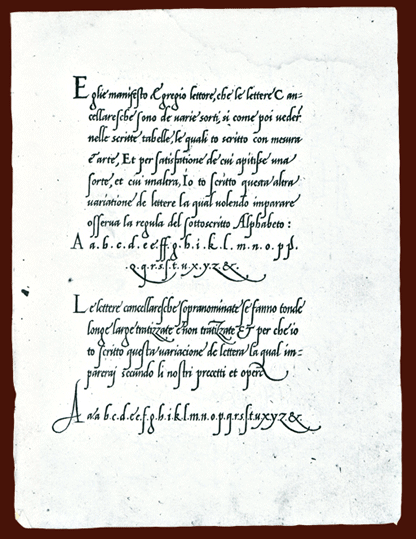 E glie manifesto Egregio lettore, che le lettere Can-
cellaresche sono de varie sorti, si come poi veder
nelle scritte tabelle, le quali to scritto con mesura
& arte, Et per satisfatione de cui apitisse una
sorte, et cui unaltra, Io to scritto questa altra
variatione de lettere la qual volendo imparare
osserva la regula del sottoscritto Alphabeto :
A a.b.c.d.e.e.ff.g.h.i.k.l.m.n.o.p.p.
.q.q.r.s.s.t.u.x.y.z.&.
Le lettere cancellaresche sopranominate se fanno tonde
longe large tratizzate e non tratizzate ET per che io
to scritto questa variacione de lettera la qual im-
parerai secundo li nostri precetti et opere
A a.a.b.c.d.e.e.f.g.h.i.k.l.m.n.o.p.q.r.s.ſ.t.u.x.y.z.&.